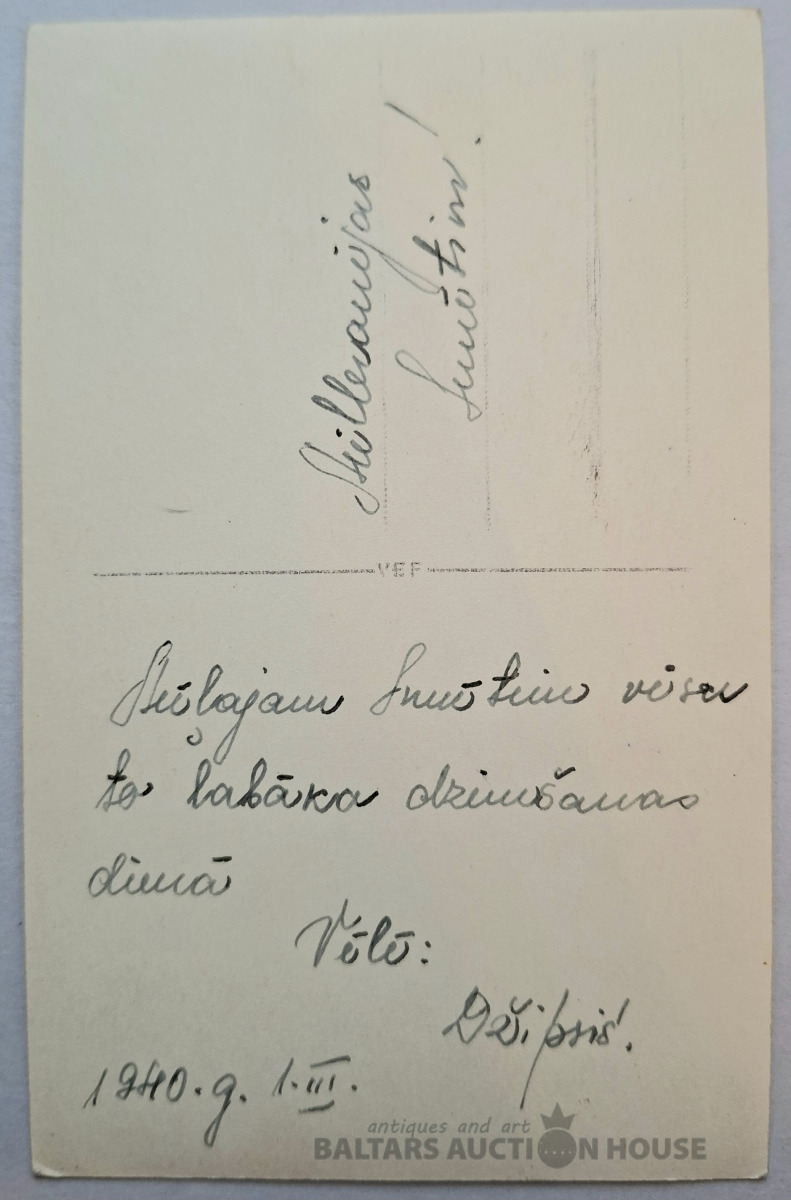 Snōtim!
VEF
Mīļajam Snōtim visu
to labāko dzimšanas
dienā
Vēlē:
Džipsis!
1940.g. 1.III.
antiques and art
BALTARS AUCTION HOUSE